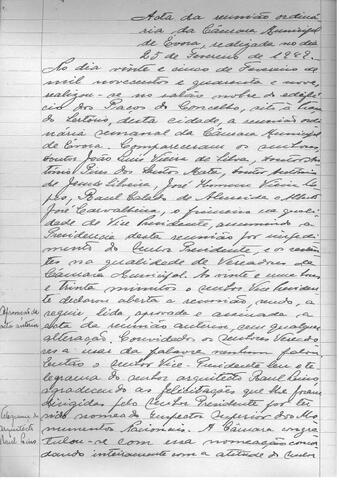 Acta da reunião ordiná-
ria da Câmara Municipal
de Evora, realizada no dia
25 de Fevereiro de 1949.
No dia vinte e cinco de Fevereiro de
mil novecentos e quarenta e nove,
realizou-se no salão nobre do edifí-
cio dos Paços do Concelho, sito à
Sertório, desta cidade, a reunião ordi-
nária semanal da Câmara Municipal
de Evora. Compareceram os senhores,
doutor João Luis Vieira da Silva, doutor An-
tónio Pires dos Santos, doutor António
de Jesus Silveira, José Vieira Lo-
pes, Raul de Almeida e Alberto
José Carvalheira, o primeiro na qua-
lidade de Vice Presidente, assumindo a
Presidencia desta reunião por impedi-
mento do Senhor Presidente e os restan-
tes na qualidade de Vereadores da
Câmara Municipal. Às vinte e uma horas
e trinta minutos o senhor Vice Presiden-
te declarou aberta a reunião, sendo, a
Aprovação da
acta anterior
seguir, lida, aprovada e assinada a
acta da reunião anterior, sem qualquer
alteração. Convidados os senhores Vereado-
res a usar da palavra nenhum falou.
Então o senhor Vice-Presidente leu o te-
Telegrama do
arquitecto
Raul Lino.
legrama do senhor arquitecto Raul Lino,
agradecendo as felicitações que lhe foram
dirigidas pelo Senhor Presidente por ter
sido nomeado Inspector Superior dos Mo-
numentos Nacionais. A Câmara congra-
tulou-se com essa nomeação concor-
dando inteiramente com a atitude do Senhor